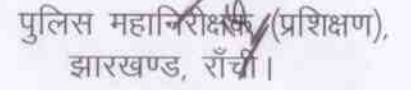 पुलिस महानिरीक्षक (प्रशिक्षण),
झारखण्ड, राँची।